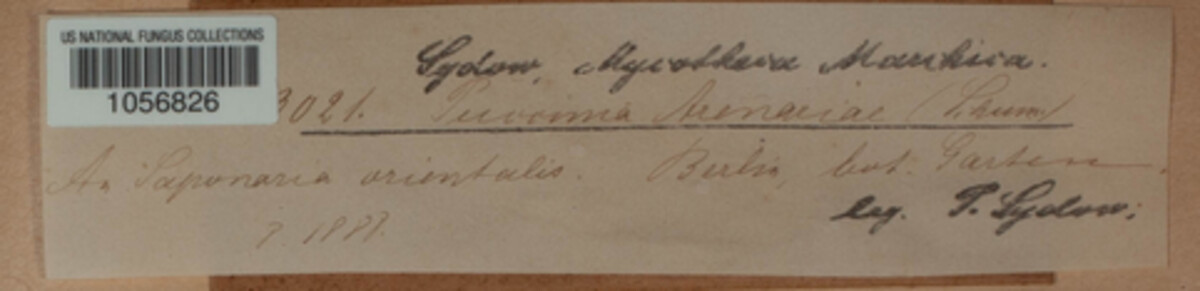 US NATIONAL FUNGUS COLLECTIONS
1056826
Sydow, Mycotheca Marchica.
3021. Puccinia Arenariae (Schum.)
An Saponaria orientalis. Berlin, bot. Garten.
leg. P. Sydow.
7. 1888.